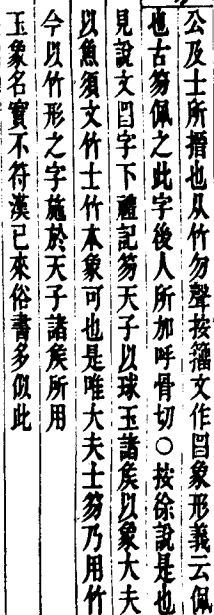 公及士所搢也从竹勿聲按籒文作𠚼象形義云佩
也古笏佩之此字後人所加呼骨切○按徐說是也
見說文𠚼字下禮記笏天子以球玉諸矦以象大夫
以魚須文竹士竹本象可也是唯大夫士笏乃用竹
今以竹形之字施於天子諸矦所用
玉象名實不符漢已來俗書多似此